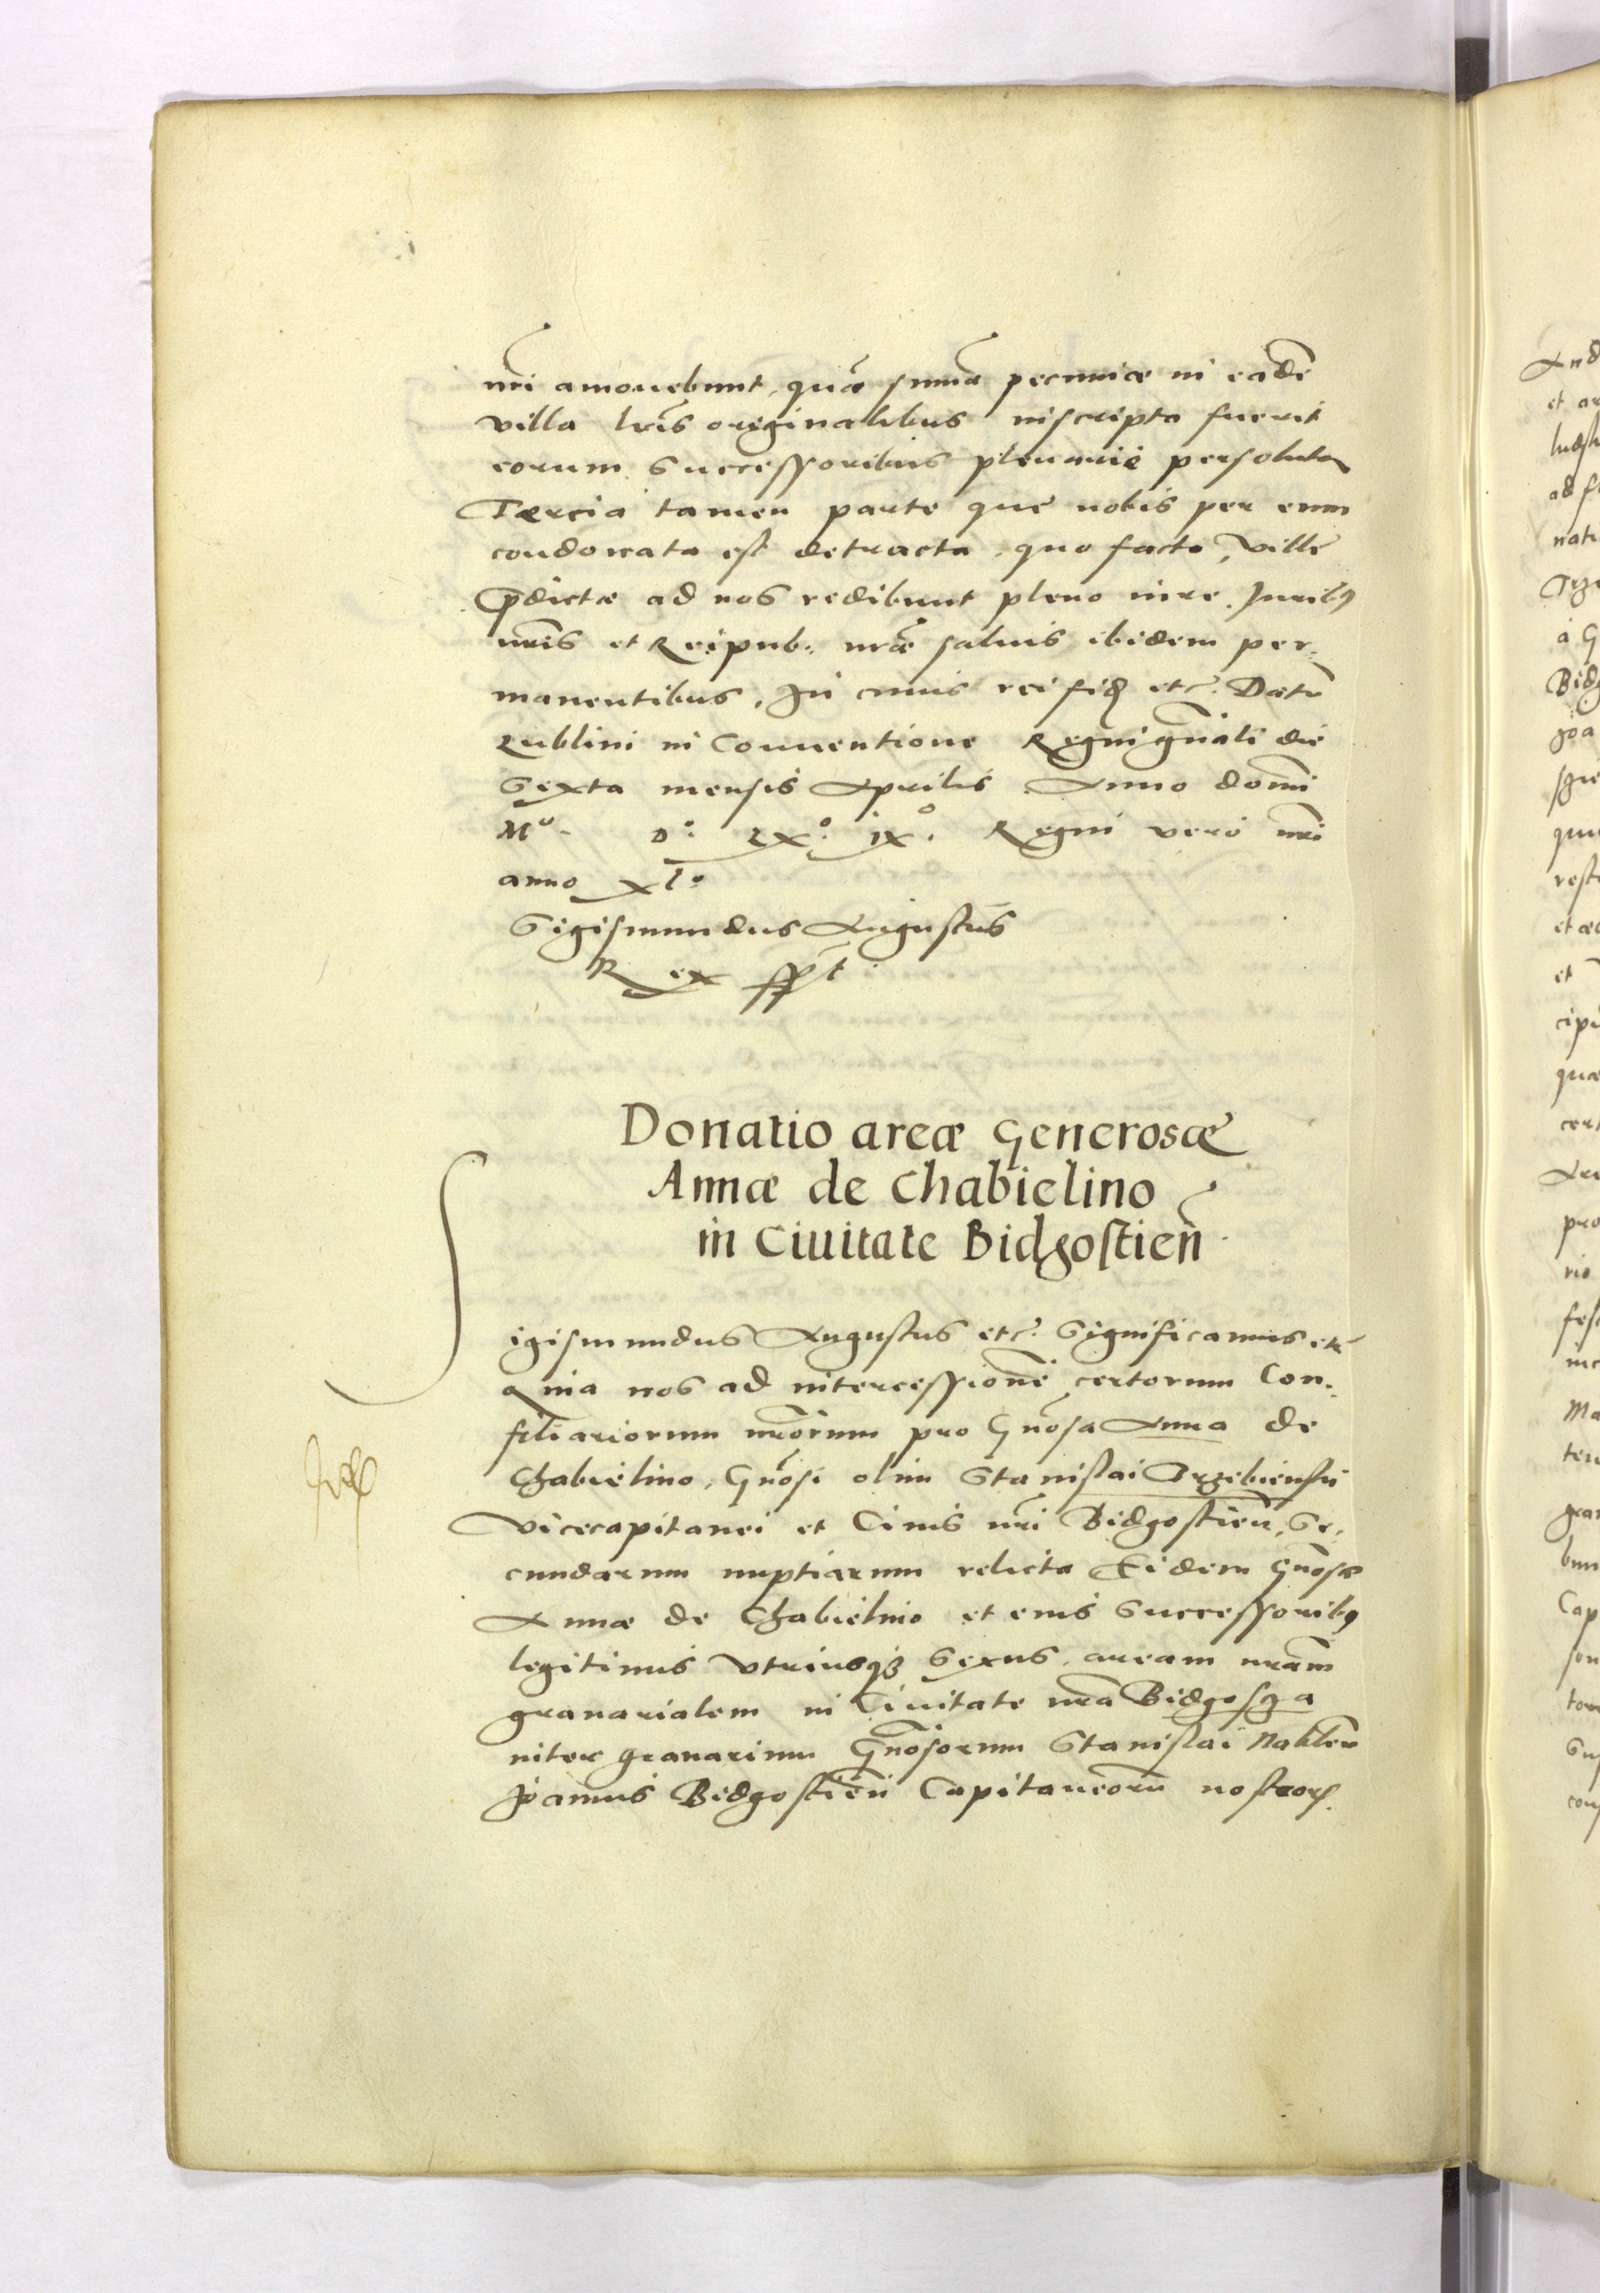 nri amovebunt, quã sũma pecuniæ in eadẽ
villa lris originalibus inscripta fuerit
eorum Successoribus plenarie persoluta
Tercia tamen parte que nobis per eum
condonata est detracta, quo facto, villæ
p̃dictæ ad nos redibunt pleno iure. Juribꝰ
nris et Reipub. nræ salvis ibidem per-
manentibus, In cuius rei fidẽ etc. Datũ
Lublini in Conventione Regni gñali die
Sexta mensis Aprilis Anno domi
Mº Dº LXº. IXº. Regni vero nri
anno XLº
Sigismundus Augustus
Rex sspt
Donatio areæ Generosæ
Annæ de Chabielino
in Civitate Bidgostien̄
Sigismundus Augustus etc. Significamus etc
Quia nos ad intercessionẽ certorum Con-
siliariorum nrorum pro Gñosa Anna de
Chabielino, Gñosi olim Stanislai Trzebienski
Vicecapitanei et Civis nri Bidgostien̄, Se-
cundarum nuptiarum relicta Eidem Gñosæ
Annæ de Chabielino et eius Successoribꝰ
legitimis Vtriusqꝫ Sexus, aream nram
granarialem in Civitate nra Bidgosza
inter granarium Gñosorum Stanislai Naklen̄
Joannis Bidgostien̄ Capitaneorũ nostroꝝ